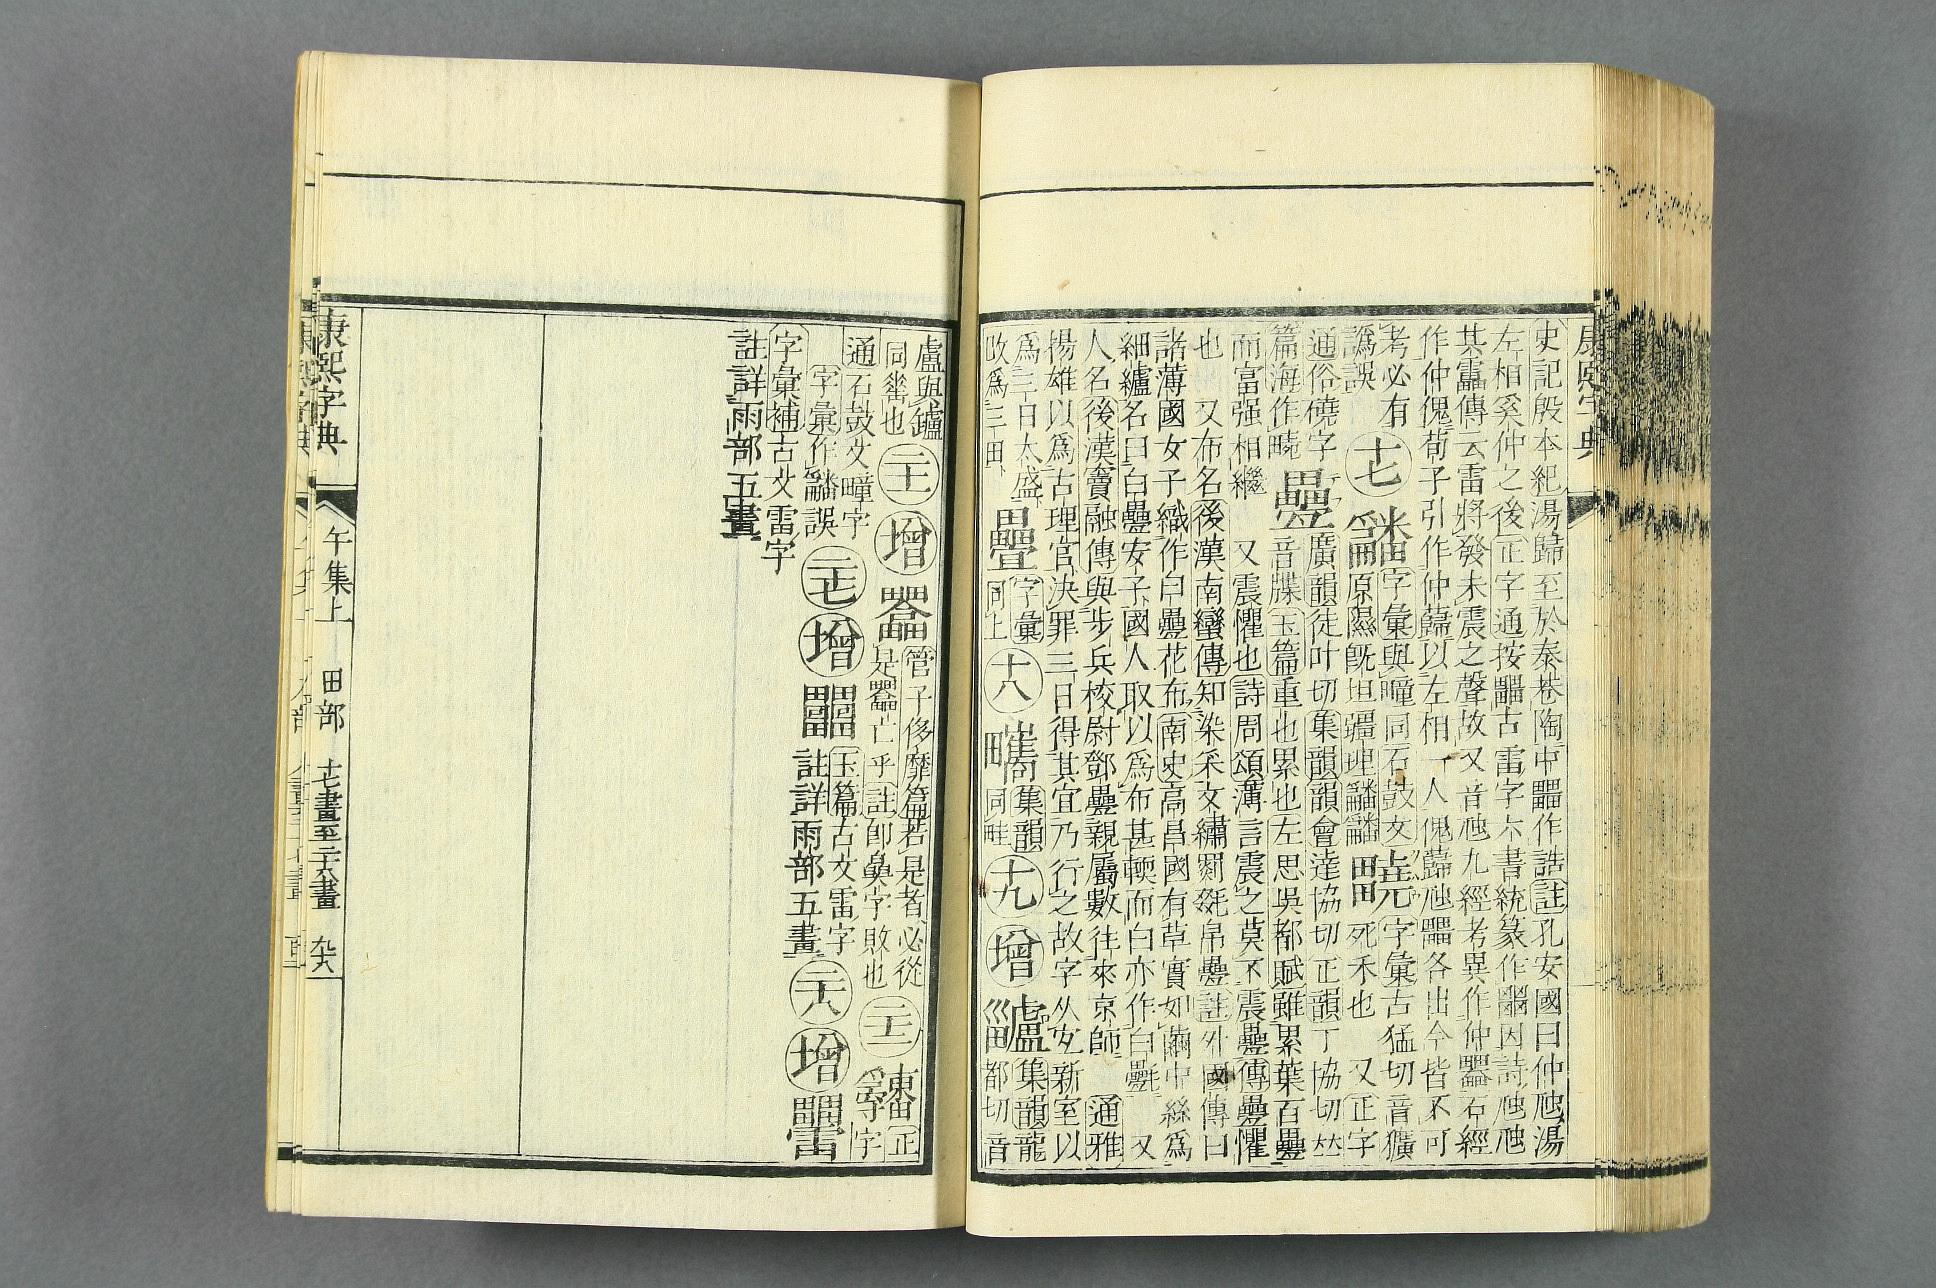 康熙字典
史記殷本紀湯歸至於泰卷陶中𤳳作誥註孔安國曰仲虺湯
左相奚仲之後正字通按𤴐古雷字六書統篆作𤴐因詩虺虺
其靁傳云雷將發未震之聲故又音虺九經考異作仲𤳳石經
作仲傀荀子引作仲蘬以左相一人傀蘬虺𤳳各出今皆不可
考必有
譌誤
十七
字彙與疃同石鼓文
原隰旣坦疆理
字彙古猛切音獷
死禾也 又正字
通俗磽字
篇海作畮
疊
廣韻徒叶切集韻韻會達協切正韻丁協切𠀤
音牒玉篇重也累也左思吳都賦雖累葉百疊
而富强相繼 又震懼也詩周頌薄言震之莫不震疊傳疊懼
也 又布名後漢南蠻傳知染采文繡罽毲帛疊註外國傳曰
諸薄國女子織作白疊花布南史高昌國有草實如繭中絲爲
細纑名曰白疊安子國人取以爲布甚輭而白亦作白㲲 又
人名後漢竇融傳與步兵校尉鄧疊親屬數往來京師 通雅
揚雄以爲古理官決罪三日得其宜乃行之故字从宜新室以
爲三日太盛
改爲三田
疊
字彙
同上
十八
𤳯
集韻
同畦
十九
增
集韻龍
都切音
盧與鑪
同𤰫也
二十一
增
管子侈靡篇若是者必從
是𤳳亡乎註卽𤳳字敗也
二十二
正
字
通石鼓文疃字
字彙作䊩誤
二十七
增
玉篇古文雷字
註詳雨部五畫
二十八
增
字彙補古文雷字
註詳雨部五畫
康熙字典
午集上
田部
十七畫至二十八畫